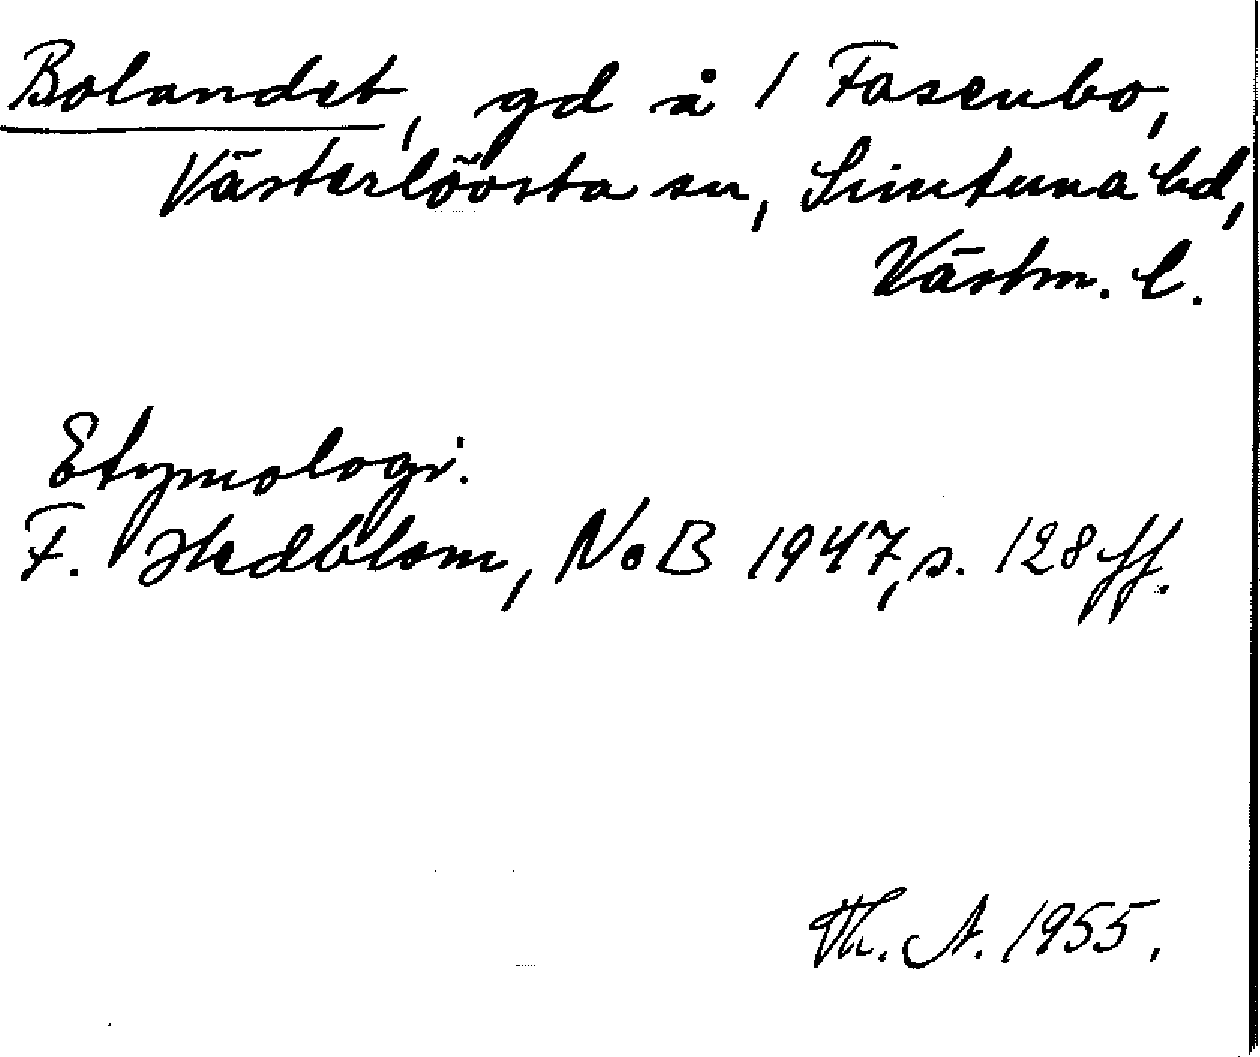 Bolandet, gd å 1 Fasenbo,
Västerlövsta sn, Simtuna hd,
Västm. l.
Etymologi.
F. Hedblom, NoB 1947, s. 128 ff.
Th. A. 1955.